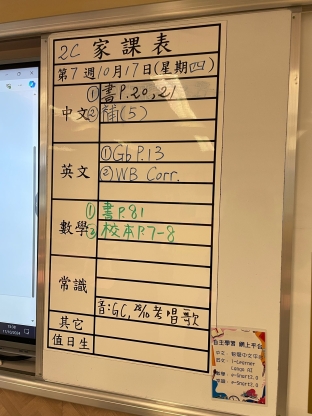 2C 家課表
第7週10月17日(星期四)
中文 ①書P.20,21
②補(5)
英文 ①Gb P.13
②WB Corr.
數學 ①書P.81
②校本P.7-8
常識
其它 音:GC, 28/10考唱歌
值日生
自主學習 網上平台